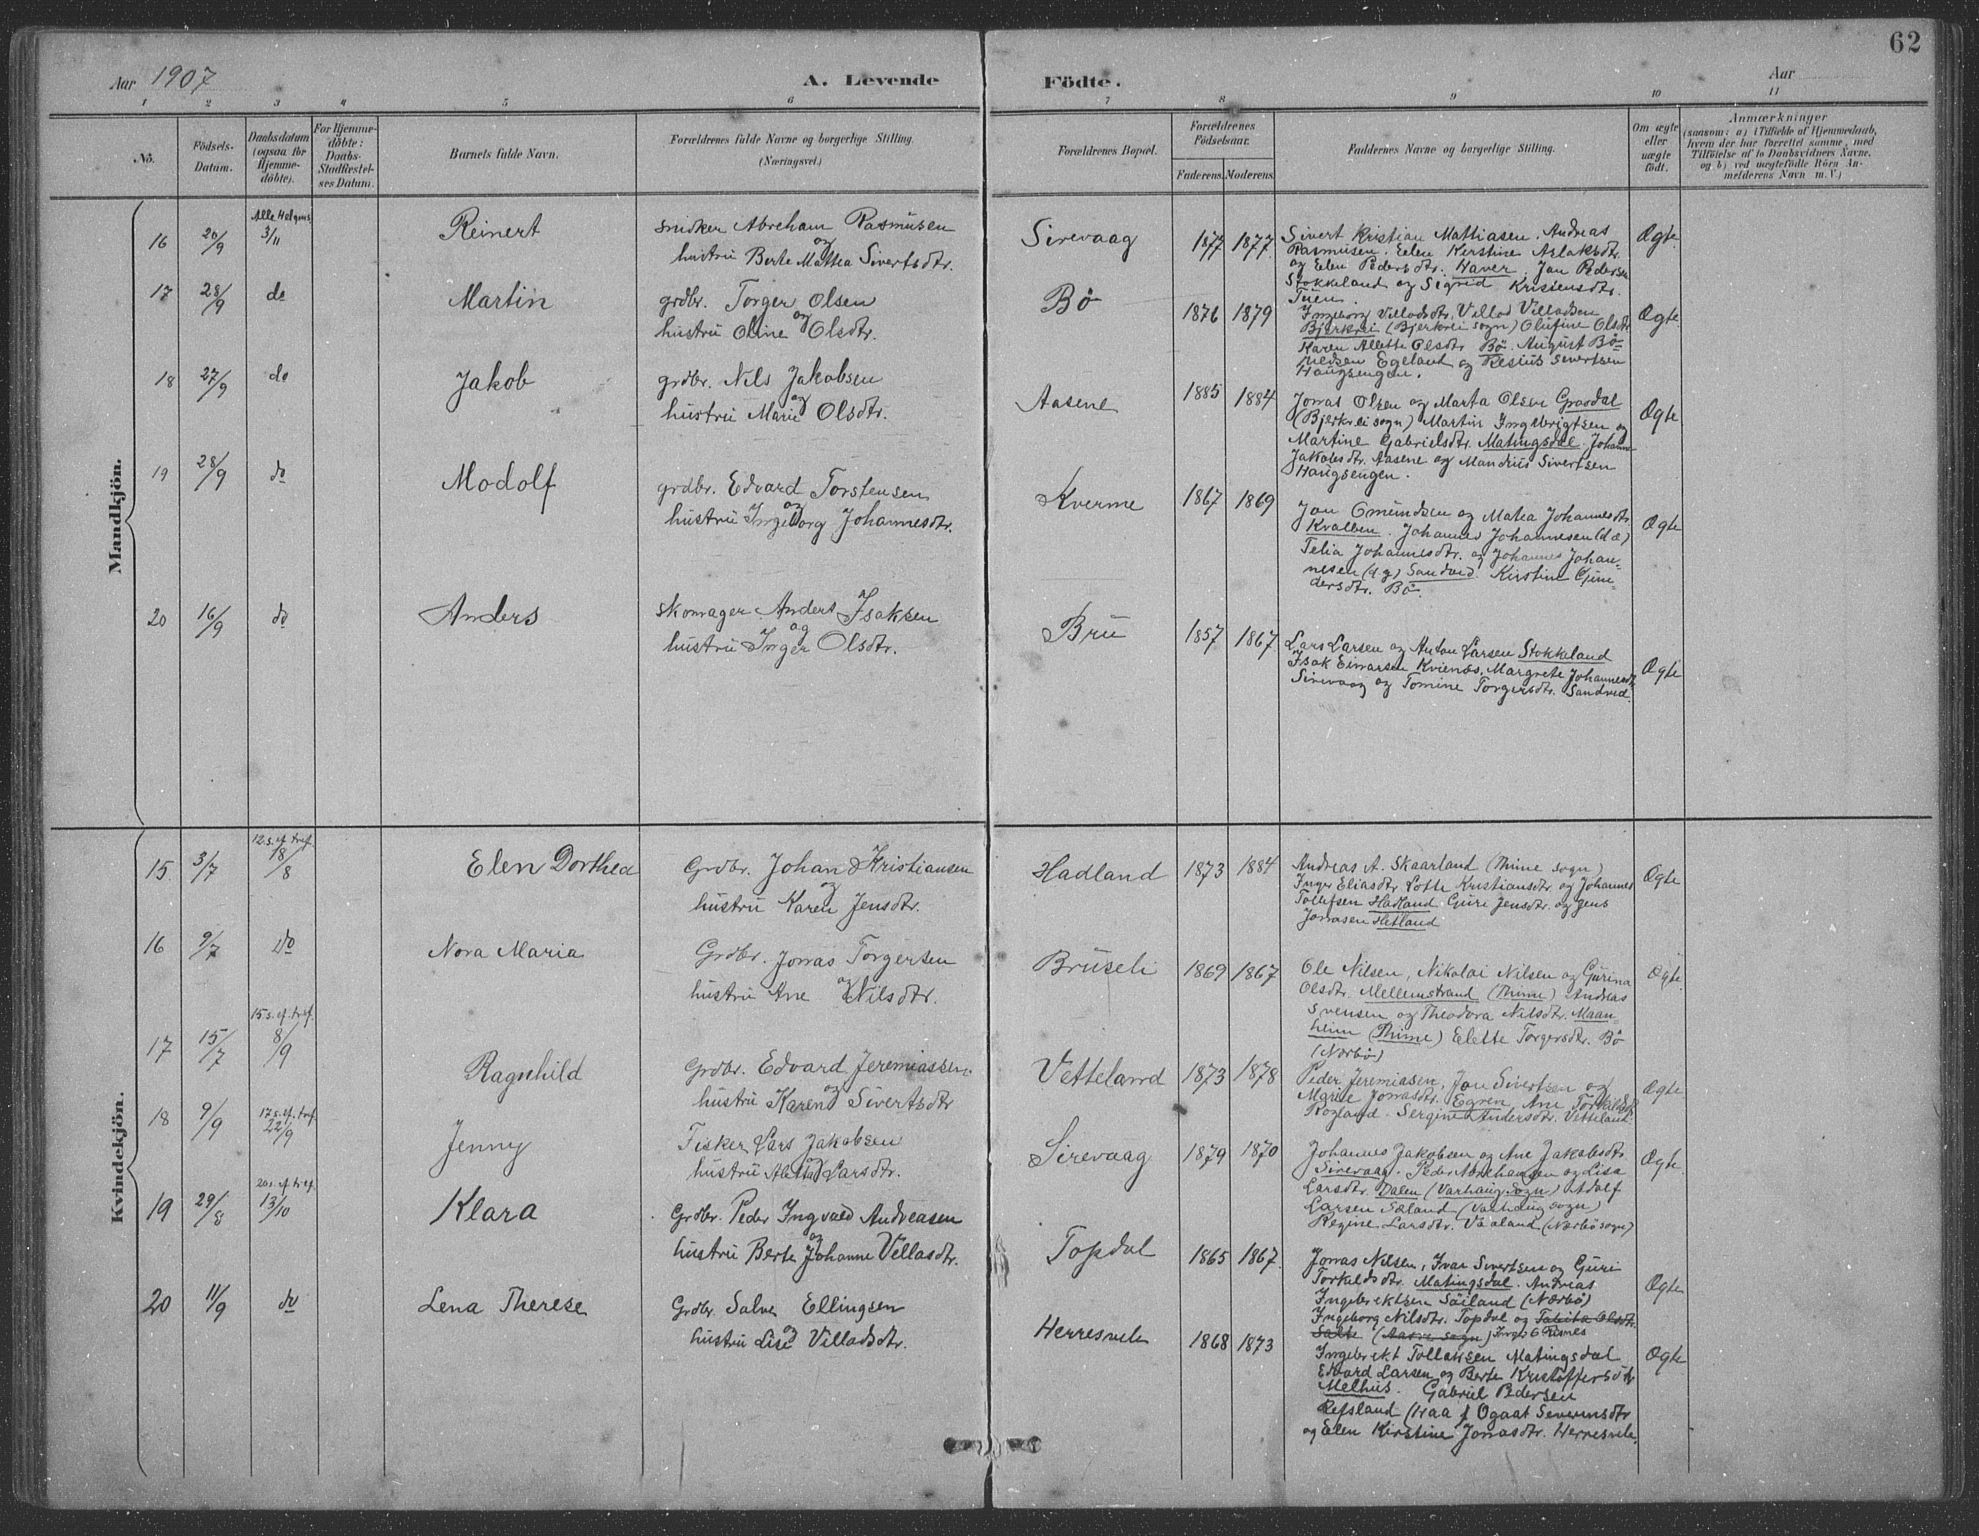 62
Aar 1907
A. Levende Födte.
Aar
1 2 3 4 5 6 7 8 9 10 11
No.
Födsels-Datum.
Daabsdatum (ogsaa for Hjemmedöbte).
For Hjemmedöbte: Daabs-Stadfæstelses Datum.
Barnets fulde Navn.
Forældrenes fulde Navne og borgerlige Stilling. (Næringsvei.)
Forældrenes Bopæl.
Forældrenes Födselsaar.
Faderens. Moderens.
Faddernes Navne og borgerlige Stilling.
Om ægte eller uægte födt.
Anmærkninger
(saasom: a) i Tilfælde af Hjemmedaab,
hvem der har forrettet samme, med
Tilföielse af to Daabsvidners Navne,
og b) ved uægtefödte Börn An-
melderens Navn m. V.)
Mandkjön.
16 20/9 Alle Helgens 3/11 Reinert
snidker Abraham Rasmusen
og
hustru Berte Mathea Sivertsdtr.
Sirevaag 1877 1877
Sivert Kristian Mathiasen, Andreas
Rasmusen, Elen Kirstine Aslaksdtr.
og Elen Pedersdtr. Haver, Jan Pedersen
Stokkeland og Sigrid Kristensdtr.
Tuen.
Ægte
17 28/9 do Martin
grdbr. Torger Olsen
og
hustru Oline Olsdtr.
Bö 1876 1879
Ingeborg Villadsdtr, Villad Villadsen
Bjerkrei (Bjerkrei sogn) Olufine Olsdtr
Karen Allette Olsdtr Bö. August Bö=
Egeland og Rasius Sivertsen
Haugsengen.
Ægte
18 27/9 do Jakob
grdbr. Nils Jakobsen
og
hustru Marie Olsdtr.
Aasene 1885 1884
Jonas Olsen og Marta Olsen Grasdal
(Bjerkrei sogn) Martin Ingebrigtsen og
Martine Gabrielsdtr. Matingsdal. Johanne
Jakobsdtr. Aasene og Mandius Sivertsen
Haugsengen.
Ægte
19 28/9 do Modolf
grdbr. Edvard Torstensen
og
hustru Ingeborg Johannesdtr.
Kverme 1867 1869
Jon Omundsen og Matea Johannesdtr
Kvalben. Johannes Johannesen (d.æ)
Telia Johannesdtr. og Johannes Johan-
nesen (d.y) Sandved. Kirstine Gun-
dersdtr. Bö.
Ægte
20 16/9 do Anders
skomager Anders Isaksen
og
hustru Inger Olsdtr.
Bru 1857 1867
Lars Larsen og Anton Larsen Stokkeland
Isak Einarsen Kvienes, Margrete Johannesdtr
Sirevaag og Tomine Torgersdtr. Sandved.
Ægte
Kvindekjön.
15 3/7 12.s.ef.tref. 18/8 Elen Dorthea
Grdbr. Johan Kristiansen
og
hustru Karen Jensdtr.
Hadland 1873 1884
Andreas A. Skaarland (Thime sogn)
Inger Eliasdtr Lotte Kristiansdtr. og Johannes
Tollefsen Hadland Guri Jensdtr. og Jens
Jonasen Hetland
Ægte
16 9/7 do Nora Maria
Grdbr. Jonas Torgersen
og
hustru Ane Nilsdtr.
Bruseli 1869 1867
Ole Nilsen, Nikolai Nilsen og Gurina
Olsdtr. Mellemstrand (Thime) Andreas
Svensen og Theodora Nilsdtr. Maan-
heim (Thime) Elette Torgersdtr. Bö
(Nærbö)
Ægte
17 15/7 15.s.ef.tref. 8/9 Ragnhild
Grdbr. Edvard Jeremiassen
og
hustru Karen Sivertsdtr
Vetteland 1873 1878
Peder Jeremiasen, Jon Sivertsen og
Marie Jonasdtr. Egren, Ane Torkildsd
Rogland. Sergine Andersdtr. Vetteland
Ægte
18 9/9 17.s.ef.tref. 22/9 Jenny
Fisker Lars Jakobsen
og
hustru Aletta Larsdtr.
Sirevaag 1879 1870
Johannes Jakobsen og Ane Jakobsdtr
Sirevaag. Peder Abrahamsen og Lisa
Larsdtr. Dalen (Varhaug Sogn) Adolf
Larsen Sæland (Varhaug sogn)
Regine Larsdtr. Vaaland (Nærbö sogn)
Ægte.
19 29/8 20.s.ef.tref. 13/10 Klara
Grdbr. Peder Ingvald Andreasen
og
hustru Berte Johanne Villasdtr.
Topdal 1865 1867
Jonas Nilsen, Ivar Sivertsen og Guri
Torkeldsdtr. Matingsdal. Andreas
Ingebrektsen Söiland (Nærbö)
Ingeborg Nilsdtr. Topdal og Tabita Olsdtr.
Salte (Aasne sogn)
Ægte
20 11/9 do Lena Therese
Grdbr. Salve Ellingsen
og
hustru Lise Villadsdtr.
Herresvele 1868 1873
Ingebrekt Tollaksen Matingsdal
Edvard Larsen og Berte Kristoffersdtr
Melhus. Gabriel Pedersen
Refsland (Haa) Ogaat Severinsdtr
og Elen Kirstine Jonasdtr. Herresvele.
Ægte